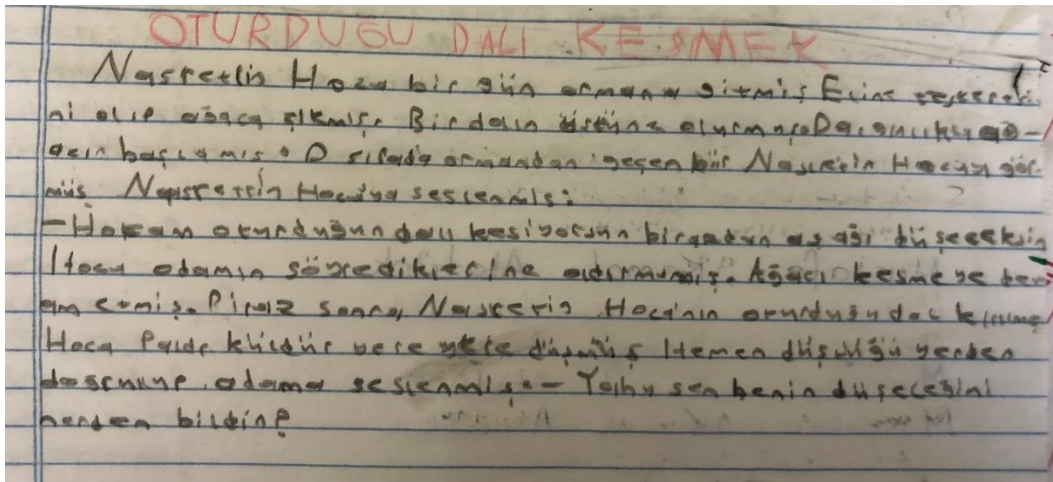 OTURDUĞU DALI KESMEK
Nasrettin Hoca bir gün ormana gitmiş Eline testeresi
ni alıp ağaca çıkmış. Bir dalın üstüne oturmuş.
başlamış. O sırada ormandan geçen bir Nasrettin Hocayı gör-
müş Nasrettin Hocaya seslenmiş:
-Hocam oturduğun dalı kesiyorsun birazdan aşağı düşeceksin
Hoca adamın söyrediklerine aldırmamış. Ağacı kesmeye dev
am etmiş. Piraz sonra, Nasrettin Hoca'nın oturduğu dal kırılmış
Hoca Paldır küldür yere düşmüş Hemen düştüğü yerden
doğrulup adama seslenmiş:- Yahu sen benin düşeceğini
nerden bildin?